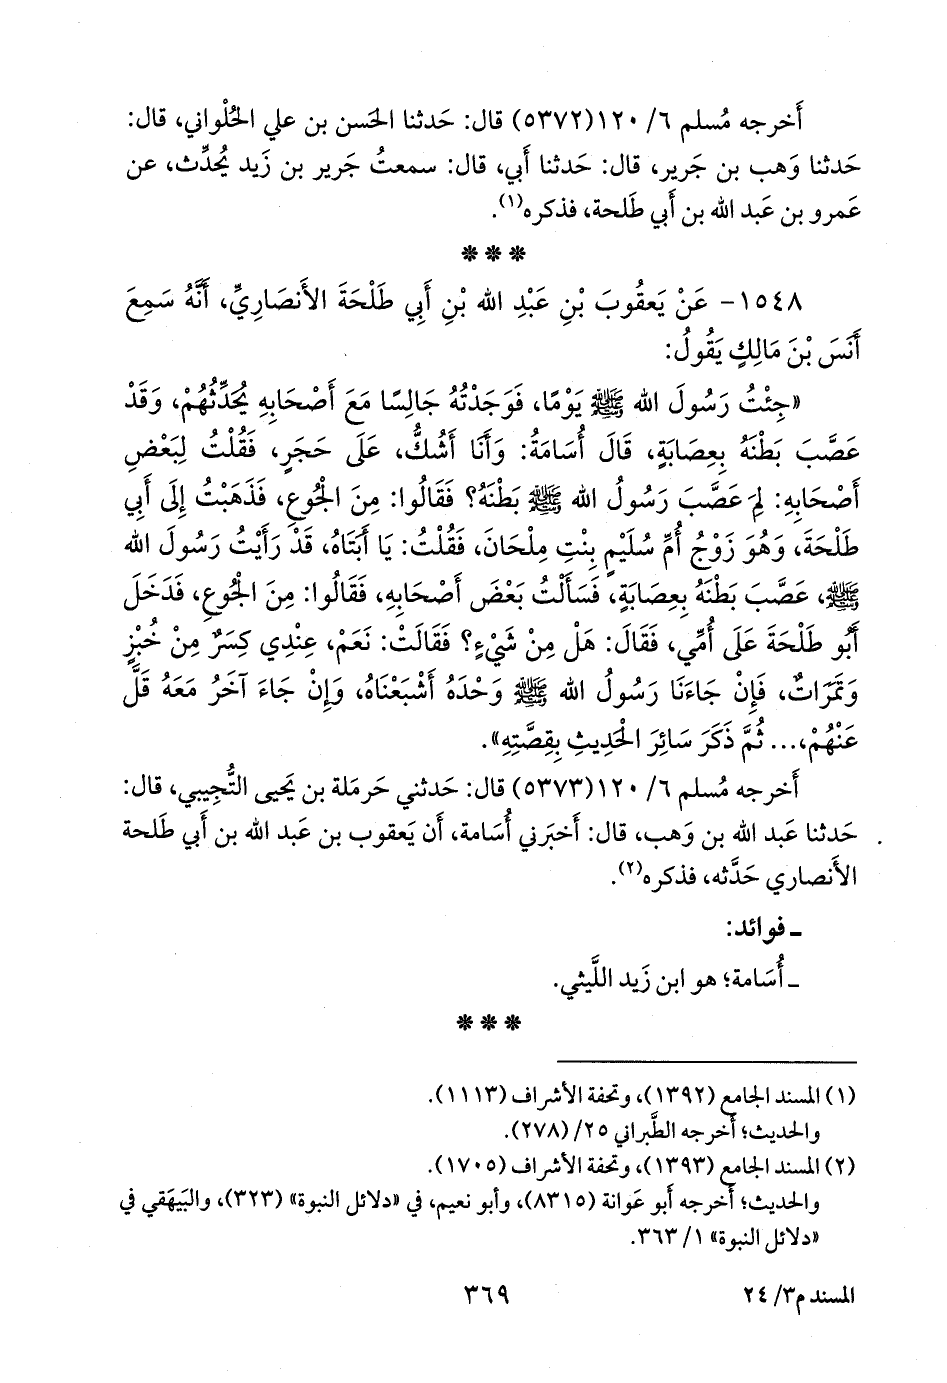 أَخرجه مُسلم ٦/ ١٢٠(٥٣٧٢) قال: حَدثنا الحَسن بن علي الحُلْواني، قال:
حَدثنا وَهب بن جَرير، قال: حَدثنا أَبي، قال: سمعتُ جَرير بن زَيد يُحدِّث، عن
عَمرو بن عَبد الله بن أَبي طَلحة، فذكره(١).
* * *
١٥٤٨- عَنْ يَعقُوبَ بْنِ عَبْدِ الله بْنِ أَبِي طَلْحَةَ الأَنصَارِيِّ، أَنَّهُ سَمِعَ
أَنَسَ بْنَ مَالِكٍ يَقُولُ:
«جِئْتُ رَسُولَ الله ﷺ يَوْمًا، فَوَجَدْتُهُ جَالِسًا مَعَ أَصْحَابِهِ يُحَدِّثُهُمْ، وَقَدْ
عَصَّبَ بَطْنَهُ بِعِصَابَةٍ، قَالَ أُسَامَةُ: وَأَنَا أَشُكُّ، عَلَى حَجَرٍ، فَقُلْتُ لِبَعْضِ
أَصْحَابِهِ: لِمَ عَصَّبَ رَسُولُ الله ﷺ بَطْنَهُ؟ فَقَالُوا: مِنَ الْجُوعِ، فَذَهَبْتُ إِلَى أَبِي
طَلْحَةَ، وَهُوَ زَوْجُ أُمِّ سُلَيْمٍ بِنْتِ مِلْحَانَ، فَقُلْتُ: يَا أَبَتَاهُ، قَدْ رَأَيْتُ رَسُولَ الله
ﷺ، عَصَّبَ بَطْنَهُ بِعِصَابَةٍ، فَسَأَلْتُ بَعْضَ أَصْحَابِهِ، فَقَالُوا: مِنَ الْجُوعِ، فَدَخَلَ
أَبُو طَلْحَةَ عَلَى أُمِّي، فَقَالَ: هَلْ مِنْ شَيْءٍ؟ فَقَالَتْ: نَعَمْ، عِنْدِي كِسَرٌ مِنْ خُبْزٍ
وَتَمَرَاتٌ، فَإِنْ جَاءَنَا رَسُولُ الله ﷺ وَحْدَهُ أَشْبَعْنَاهُ، وَإِنْ جَاءَ آخَرُ مَعَهُ قَلَّ
عَنْهُمْ،... ثُمَّ ذَكَرَ سَائِرَ الْحَدِيثِ بِقِصَّتِهِ».
أَخرجه مُسلم ٦/ ١٢٠(٥٣٧٣) قال: حَدثني حَرمَلة بن يَحيى التُّجِيبي، قال:
حَدثنا عَبد الله بن وَهب، قال: أَخبَرني أُسَامة، أَن يَعقوب بن عَبد الله بن أَبي طَلحة
الأَنصاري حَدَّثه، فذكره(٢).
ـ فوائد:
ـ أُسَامة؛ هو ابن زَيد اللَّيثي.
* * *
(١) المسند الجامع (١٣٩٢)، وتحفة الأشراف (١١١٣).
والحديث؛ أخرجه الطَّبراني ٢٥/ (٢٧٨).
(٢) المسند الجامع (١٣٩٣)، وتحفة الأشراف (١٧٠٥).
والحديث؛ أخرجه أبو عَوانة (٨٣١٥)، وأبو نعيم، في «دلائل النبوة» (٣٢٣)، والبَيهَقي في
«دلائل النبوة» ١/ ٣٦٣.
المسند م٣/ ٢٤
٣٦٩